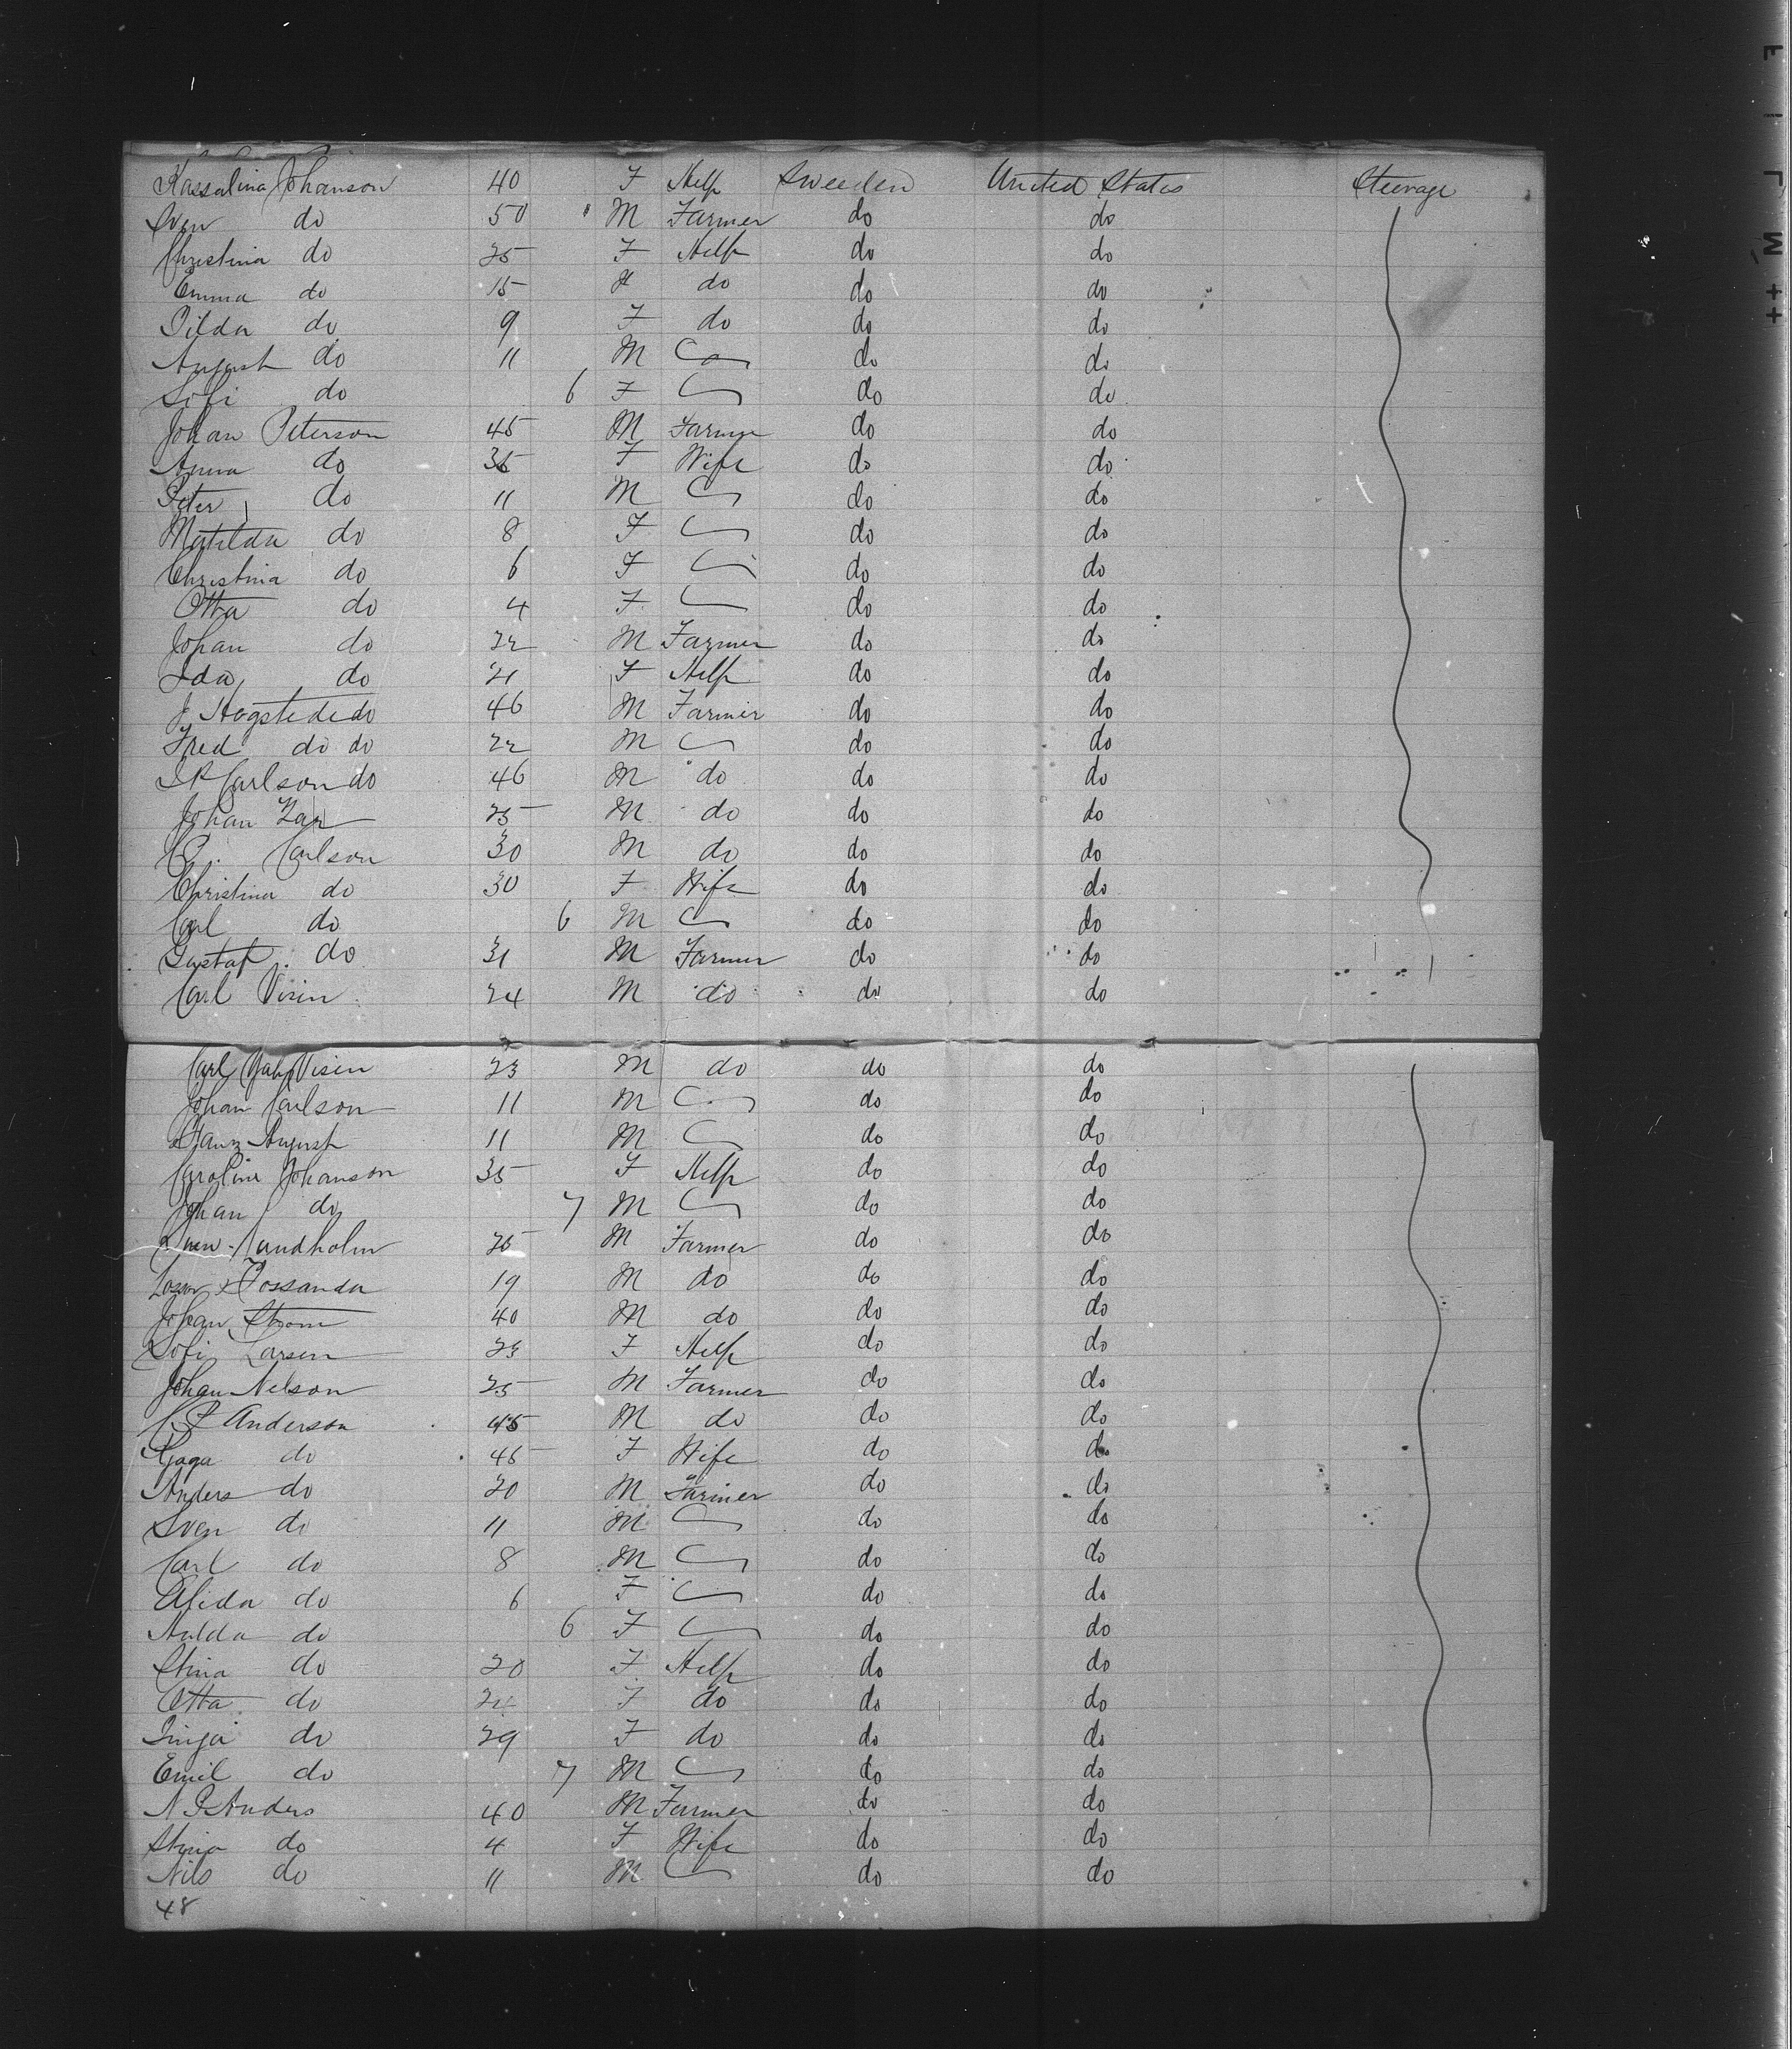 Kassalina Johanson 40 F Help Sweeden United States Steerage
Sven do 50 M Farmer do do
Christina do 25 F Help do do
Emma do 15 F do do do
Tilda do 9 F do do do
August do 11 M do do
Sofi do 6 F do do
Johan Peterson 45 M Farmer do do
Anna do 35 F Wife do do
Peter do 11 M do do
Matilda do 8 F do do
Christina do 6 F do do
Otta do 4 F do do
Johan do 22 M Farmer do do
Ida do 21 F Help do do
J Hogstede do 46 M Farmer do do
Fred do do 22 M do do
Carlson do 46 M do do do
Johan 25 M do do do
Carlson 30 M do do do
Christina do 30 F Wife do do
Carl do 6 M do do
Gustaf do 31 M Farmer do do
Carl Visin 24 M do do do
Carl Visin 23 M do do do
Johan Carlson 11 M do do
August 11 M do do
Carolina Johanson 35 F Help do do
Johan do 7 M do do
Sven 25 M Farmer do do
19 M do do do
Johan Strom 40 M do do do
Sofi Larsen 23 F Help do do
Johan Nelson 25 M Farmer do do
Anderson 45 M do do do
do 45 F Wife do do
Anders do 20 M Farmer do do
Sven do 11 M do do
Carl do 8 M do do
Alida do 6 F do do
Hulda do 6 F do do
Stina do 20 F Help do do
Otta do 24 F do do do
Inga do 29 F do do do
Emil do 7 M do do
N P Anders 40 M Farmer do do
Stina do 4 F Wife do do
Nils do 11 M do do
48